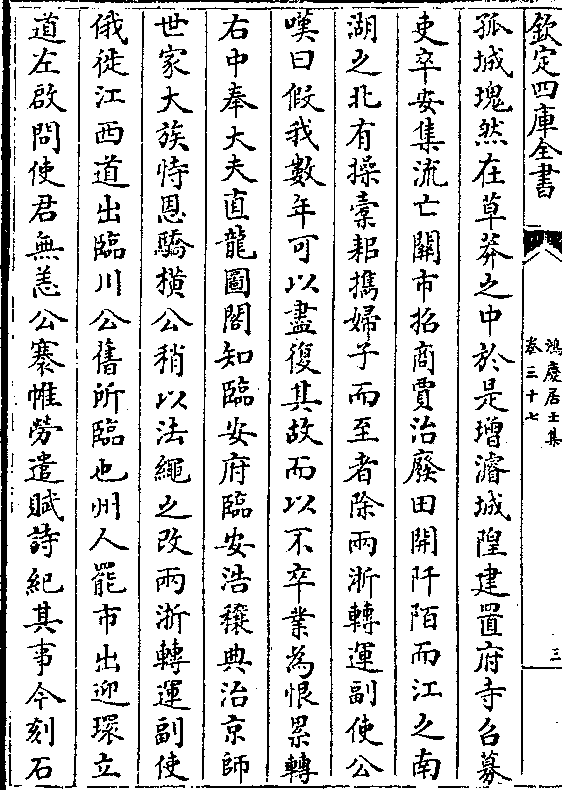 欽定四庫全書
鴻慶居士集
卷三十七
三
孤城塊然在草莽之中於是增濬城隍建置府寺召募
吏卒安集流亡闢市招商賈治廢田開阡陌而江之南
湖之北有操橐耜擕婦子而至者除兩浙轉運副使公
嘆曰假我數年可以盡復其故而以不卒業為恨累轉
右中奉大夫直龍圖閣知臨安府臨安浩穰典治京師
世家大族恃恩驕橫公稍以法繩之改兩浙轉運副使
俄徙江西道出臨川公舊所臨也州人罷市出迎環立
道左啟問使君無恙公褰帷勞遣賦詩紀其事今刻石